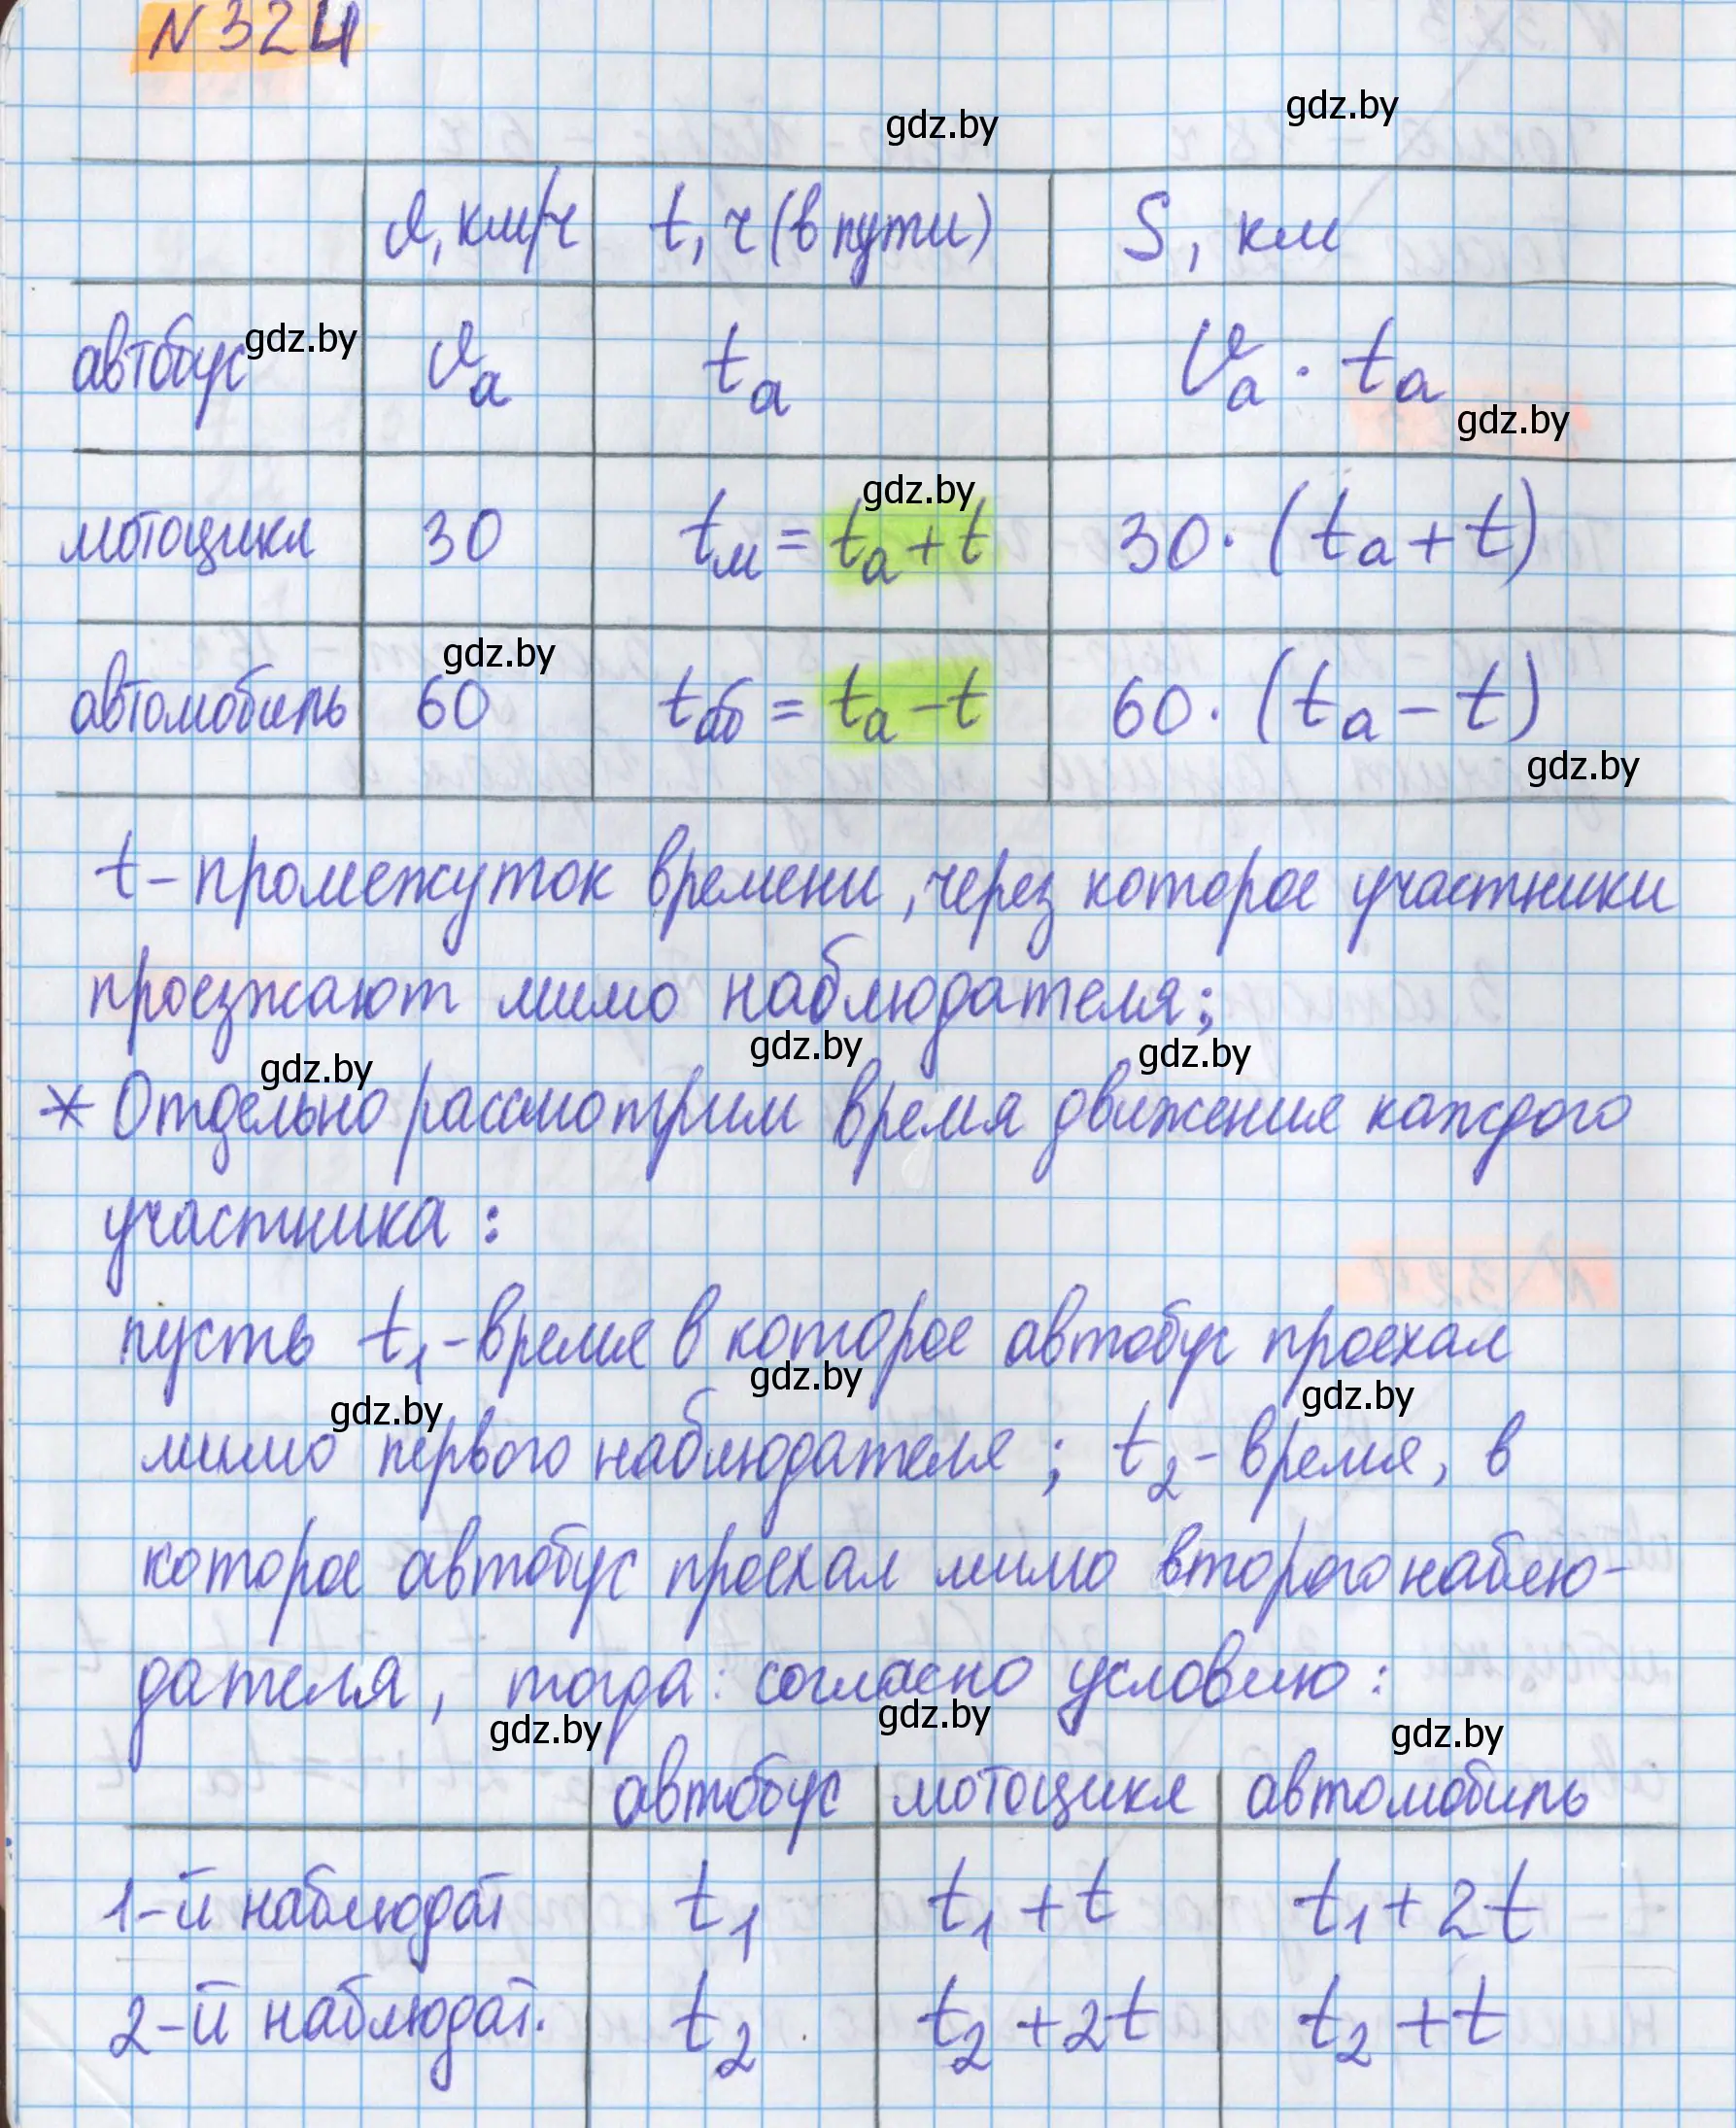 N 324
gdz.by
gdz.by
v, км/ч t, ч (в пути) S, км
автобус gdz.by vₐ tₐ vₐ · tₐ
gdz.by
gdz.by
мотоцикл 30 tм = tₐ + t 30 · (tₐ + t)
gdz.by
автомобиль 60 tаб = tₐ − t 60 · (tₐ − t)
gdz.by
t – промежуток времени, через которое участники
проезжают мимо наблюдателя;
gdz.by gdz.by gdz.by
* Отдельно рассмотрим время движения каждого
участника:
пусть t₁ – время в которое автобус проехал
gdz.by gdz.by gdz.by
мимо первого наблюдателя; t₂ – время, в
которое автобус проехал мимо второго наблю-
дателя, тогда: согласно условию:
gdz.by gdz.by gdz.by
автобус мотоцикл автомобиль
1-й наблюдат t₁ t₁ + t t₁ + 2t
2-й наблюдат. t₂ t₂ + 2t t₂ + t